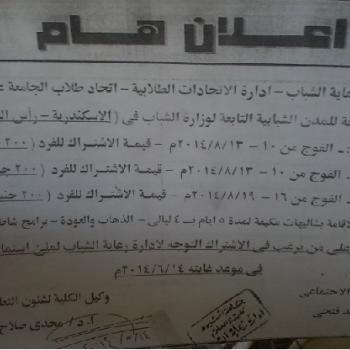 اعلان هام
عاية الشباب – ادارة الاتحادات الطلابية – اتحاد طلاب الجامعة ع
ة للمدن الشبابية التابعة لوزارة الشباب فى ( الاسكندرية – رأس ال
:ـ الفوج من ١٠ – ٢٠١٤/٨/١٣م – قيمة الاشتراك للفرد (٢٠٠
ـ الفوج من ١٠ – ٢٠١٤/٨/١٣م – قيمة الاشتراك للفرد (٢٠٠ ج
ـ الفوج من ١٦ – ٢٠١٤/٨/١٩م – قيمة الاشتراك للفرد (٢٠٠ جنـ
الاقامة بشاليهات مكيفة لمدة ٥ ايام بـ ٤ ليالى – الذهاب والعودة – برامج شاط
على من يرغب فى الاشتراك التوجه لادارة رعاية الشباب لملئ استما
فى موعد غايته ٢٠١٤/٦/١٤م
وكيل الكلية لشئون التعل
الاجتماعى
د فتحى
أ.د/ مجدى صلاح